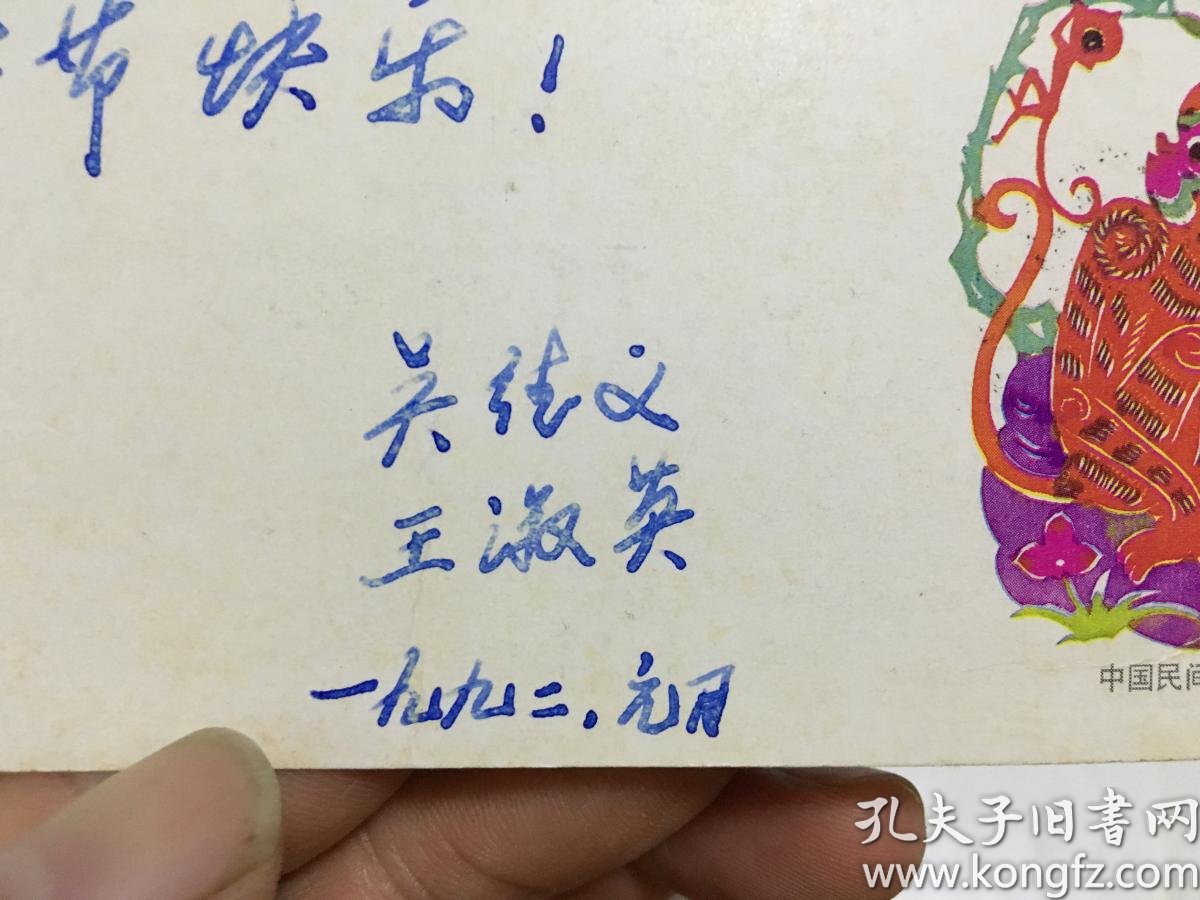 节快乐！
吴
文
王淑英
一九九二.元月
中国民间
孔夫子旧书网
www.kongfz.com